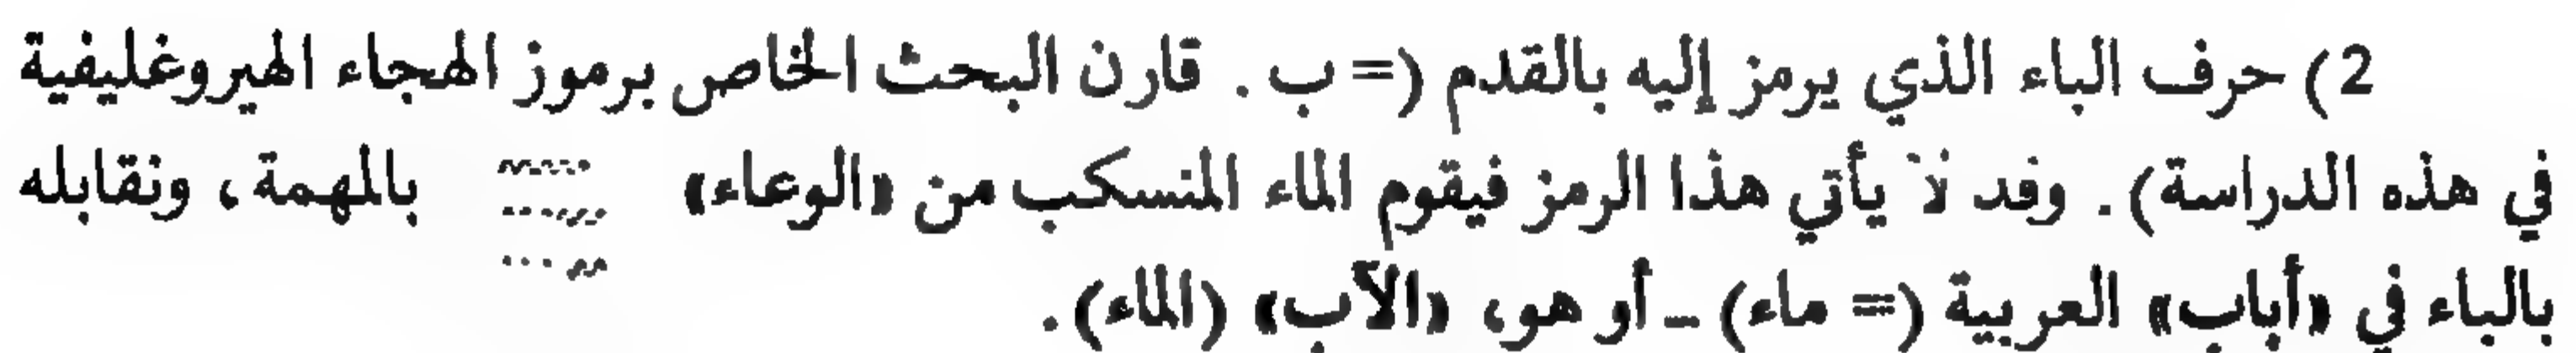 2) حرف الباء الذي يرمز إليه بالقدم (= ب . قارن البحث الخاص برموز الهجاء الهيروغليفية
في هذه الدراسة) . وقد لا يأتي هذا الرمز فيقوم الماء المنسكب من «الوعاء» بالمهمة ، ونقابله
بالباء في «أباب» العربية (= ماء) ــ أو هو، «الآب» (الماء) .